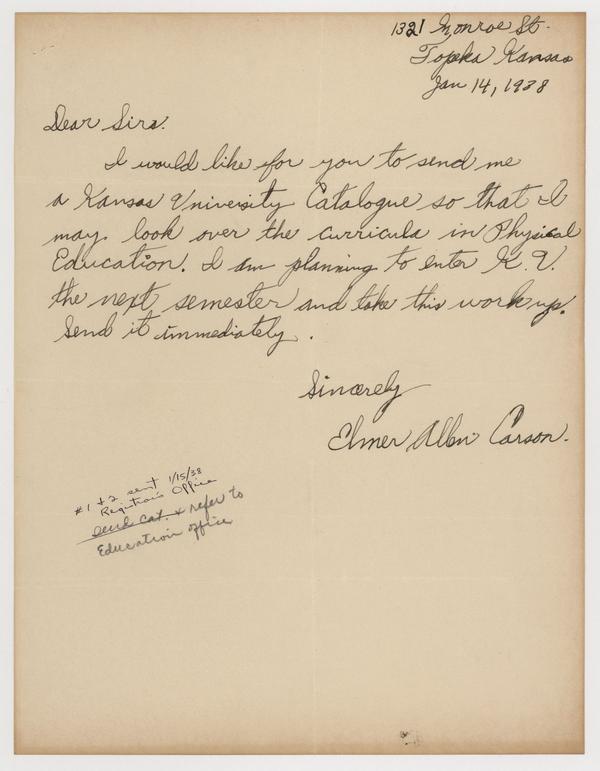 1321 Monroe St.
Topeka Kansas
Jan 14, 1938
Dear Sirs:
I would like for you to send me
a Kansas University Catalogue so that I
may look over the curricula in Physical
Education. I am planning to enter K.U.
the next semester and take this work up.
Send it immediately.
Sincerely
Elmer Allen Carson.
#1 + 2 sent 1/15/38
Registrar's Office
send cat. & refer to
Education office